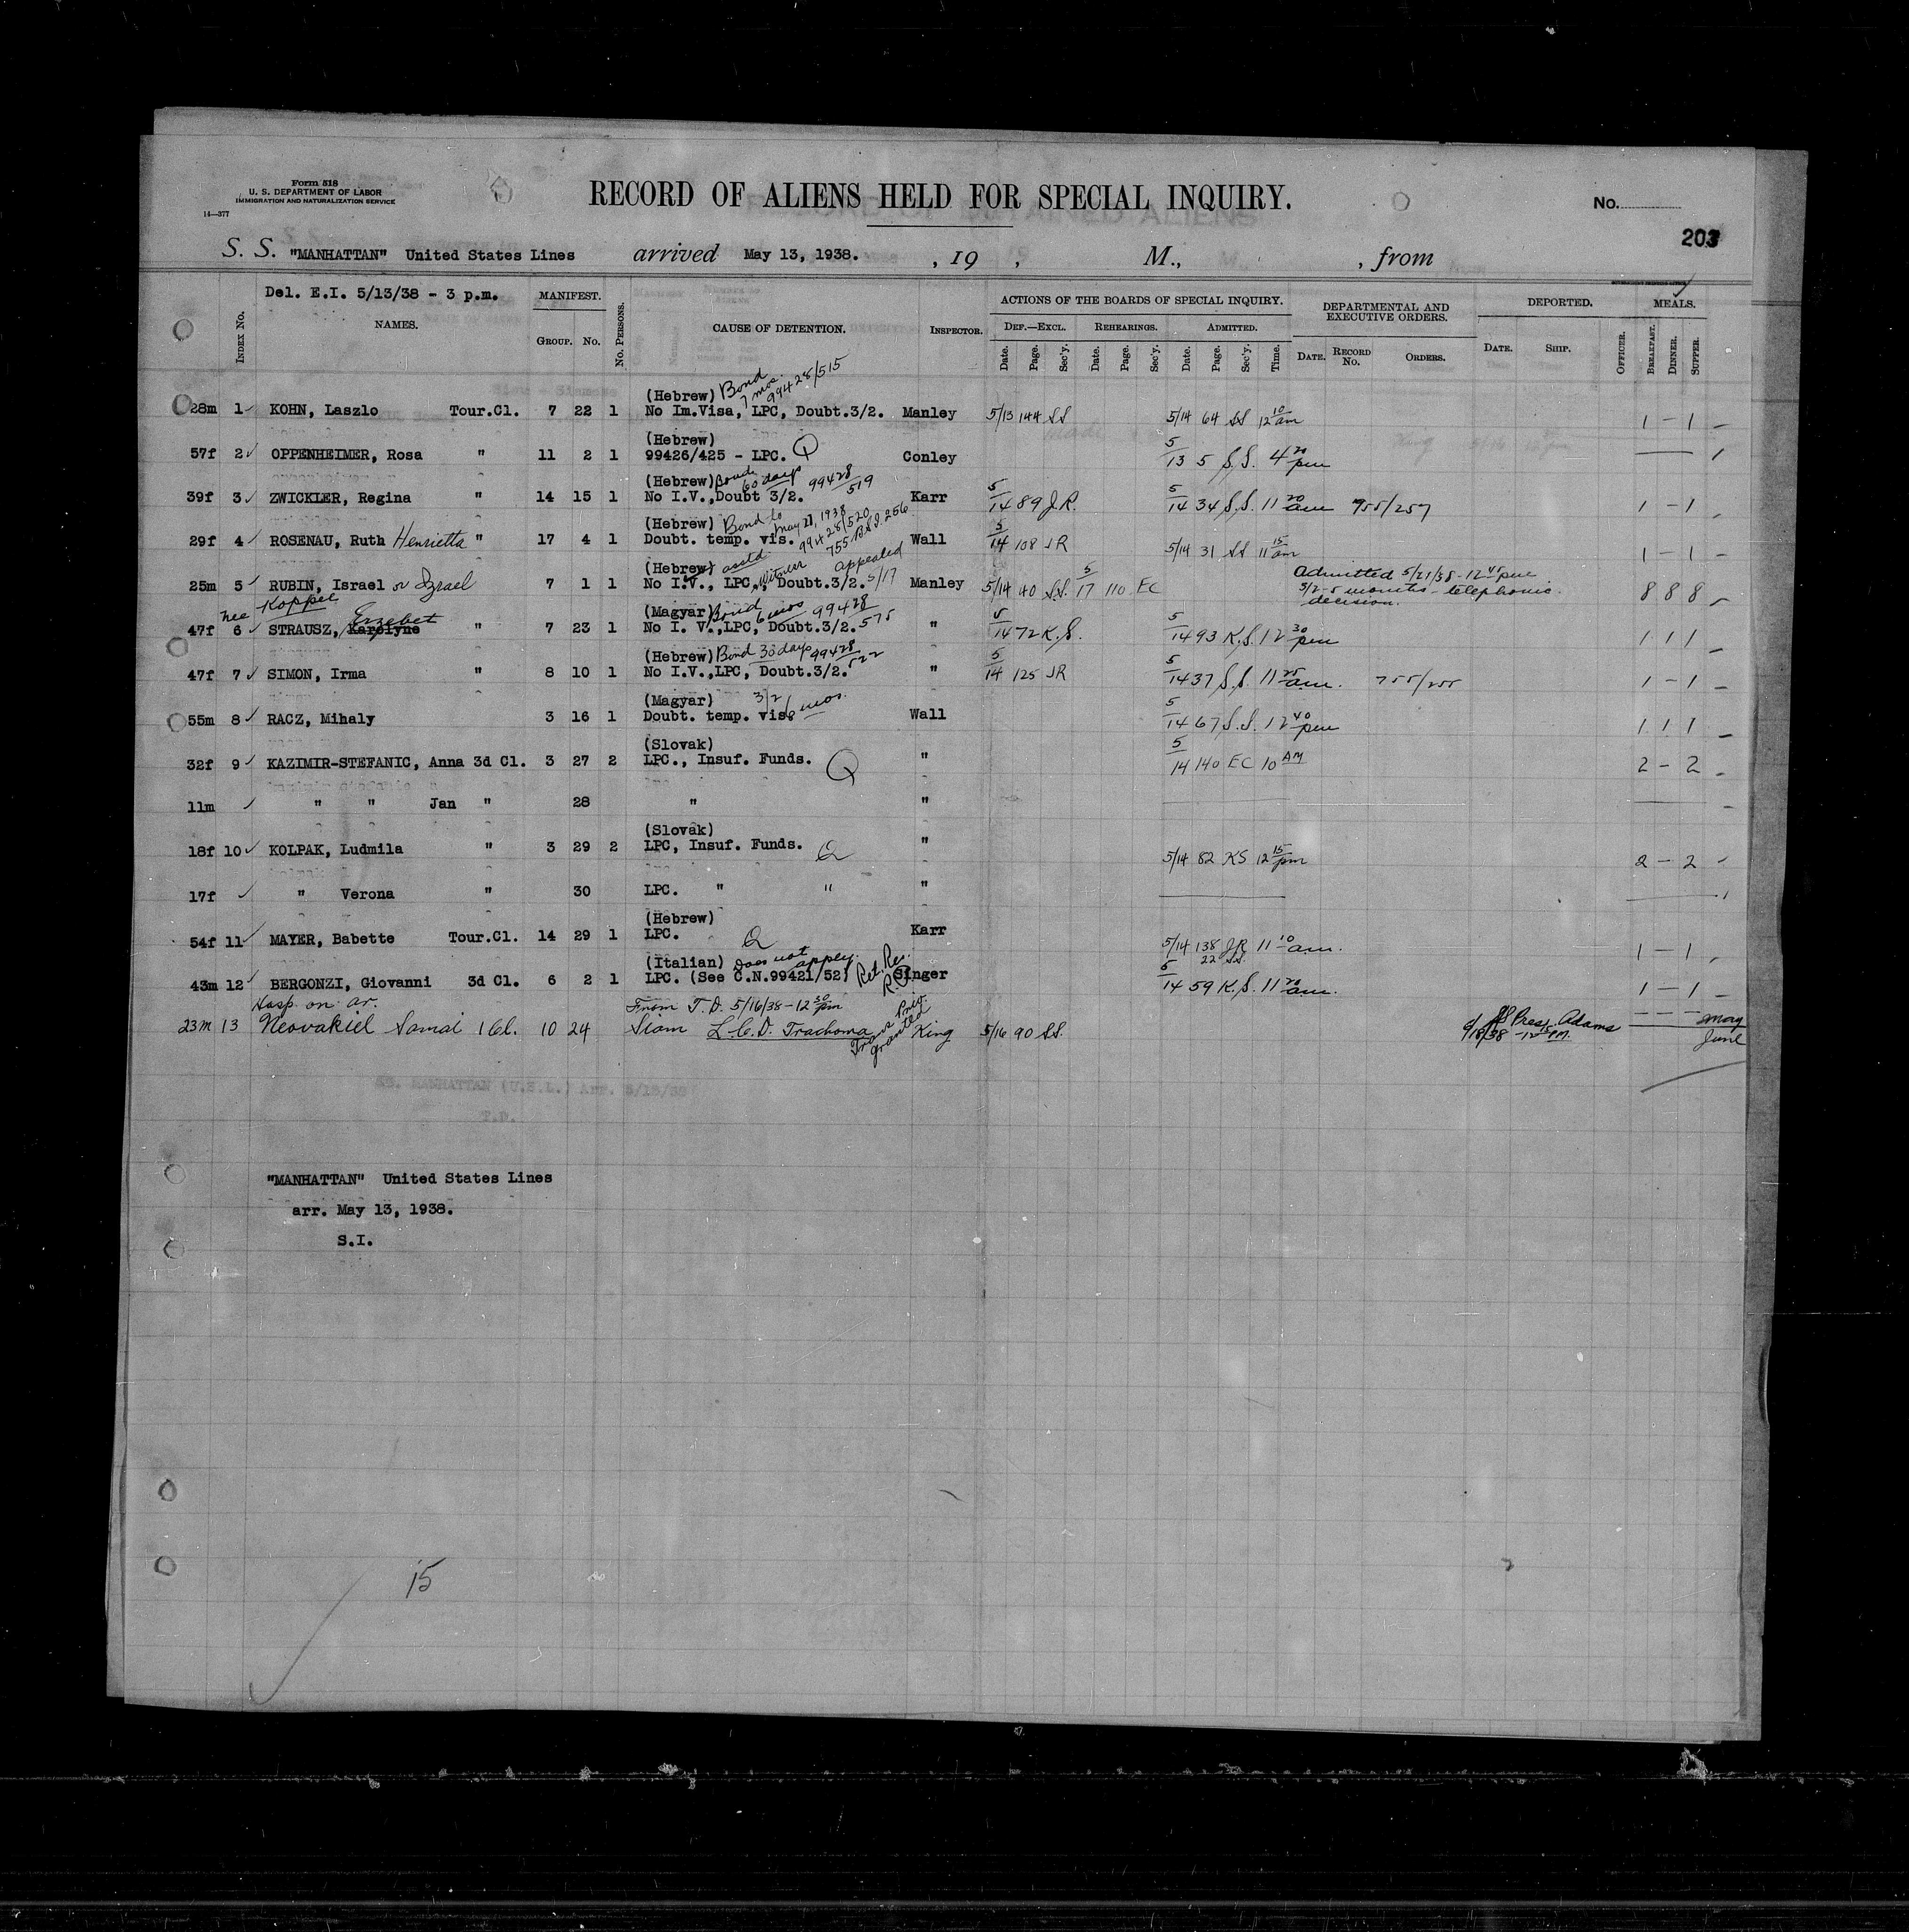 Form 518
U. S. DEPARTMENT OF LABOR
IMMIGRATION AND NATURALIZATION SERVICE
14—377
RECORD OF ALIENS HELD FOR SPECIAL INQUIRY.
No.
203
S. S. "MANHATTAN" United States Lines arrived May 13, 1938. , 19 , M., , from
Del. E.I. 5/13/38 - 3 p.m.
INDEX No. NAMES. MANIFEST. GROUP. No. No. PERSONS. CAUSE OF DETENTION. INSPECTOR. ACTIONS OF THE BOARDS OF SPECIAL INQUIRY. DEF.—EXCL. Date. Page. Sec'y. REHEARINGS. Date. Page. Sec'y. ADMITTED. Date. Page. Sec'y. Time. DEPARTMENTAL AND EXECUTIVE ORDERS. DATE. RECORD No. ORDERS. DEPORTED. DATE. SHIP. OFFICER. MEALS. BREAKFAST. DINNER. SUPPER.
(Hebrew) Bond 7 mos. 99428/515
28m 1 KOHN, Laszlo Tour.Cl. 7 22 1 No Im.Visa, LPC, Doubt.3/2. Manley 5/13 144 SS 5/14 64 SS 12 10 am 1 – 1 –
(Hebrew)
57f 2 OPPENHEIMER, Rosa " 11 2 1 99426/425 - LPC. Q Conley 5/13 5 S.S. 4 20 pm
(Hebrew) Bond 60 days 99428/519
39f 3 ZWICKLER, Regina " 14 15 1 No I.V.,Doubt 3/2. Karr 5/14 89 J.R. 5/14 34 S.S. 11 20 am 755/257 1 – 1
(Hebrew) Bond to May 21, 1938 99428/520
29f 4 ROSENAU, Ruth Henrietta " 17 4 1 Doubt. temp. vis. 755 B.S.I. 256 Wall 5/14 108 JR 5/14 31 SS 11 15 am 1 – 1 –
(Hebrew) witness appealed 5/17
25m 5 RUBIN, Israel or Izrael 7 1 1 No I.V., LPC, Doubt.3/2. Manley 5/14 40 S.S. 5/17 110 EC Admitted 5/21/38 - 12 45 pm 3/2 - 5 months - telephonic decision. 8 8 8
nee Koppel Erzebet
(Magyar) Bond 6 mos 99428/575
47f 6 STRAUSZ, Karolyne " 7 23 1 No I. V.,LPC, Doubt.3/2. " 5/14 72 K.S. 5/14 93 K.S. 12 30 pm 1 1 1 –
(Hebrew) Bond 30 days 99428/522
47f 7 SIMON, Irma " 8 10 1 No I.V.,LPC, Doubt.3/2. " 5/14 125 JR 5/14 37 S.S. 11 25 am. 755/255 1 – 1 –
(Magyar) 3/2 mos.
55m 8 RACZ, Mihaly 3 16 1 Doubt. temp. vis. Wall 5/14 67 S.S. 12 40 pm 1 1 1 –
(Slovak)
32f 9 KAZIMIR-STEFANIC, Anna 3d Cl. 3 27 2 LPC., Insuf. Funds. Q " 5/14 140 EC 10 AM 2 – 2
11m " " Jan " 28 " "
(Slovak)
18f 10 KOLPAK, Ludmila " 3 29 2 LPC, Insuf. Funds. Q " 5/14 82 KS 12 15 pm 2 – 2
17f " Verona " 30 LPC. " " "
(Hebrew)
54f 11 MAYER, Babette Tour.Cl. 14 29 1 LPC. Q Karr 5/14 138 JR 11 10 am. 1 – 1
22 SS.
(Italian) Does not apply. Ret. Res.
43m 12 BERGONZI, Giovanni 3d Cl. 6 2 1 LPC. (See C.N.99421/52) Singer 5/14 59 K.S. 11 20 am. 1 – 1 –
Hosp on ar. From T.D. 5/16/38 - 12 30 pm
23m 13 Neovakiel Samai 1 Cl. 10 24 Siam L.C.D. Trachoma Trans Priv. granted King 5/16 90 SS. 6/18/38 SS Pres. Adams - 12 15 PM. – – – May
June
SS. MANHATTAN (U.S.L.) Arr. 5/13/38
T.D.
"MANHATTAN" United States Lines
arr. May 13, 1938.
S.I.
15